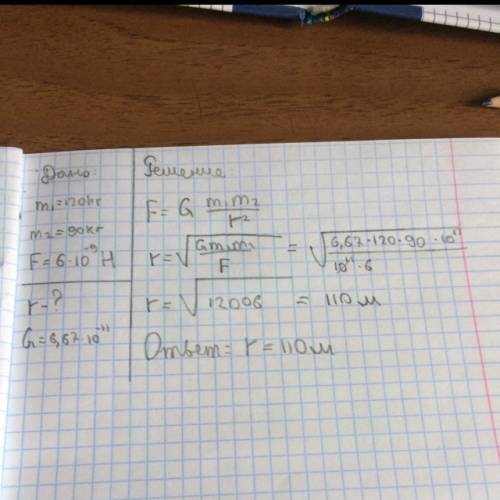 Дано:
m₁=120кг
m₂=90кг
F=6·10⁻⁹ Н
r-?
G=6,67·10⁻¹¹
Решение:
F= G m₁m₂/r²
r=√(Gm₁m₂/F) = √(6,67·120·90·10⁻¹¹/10⁻⁹·6)
r=√12006 = 110м
Ответ: r=110м